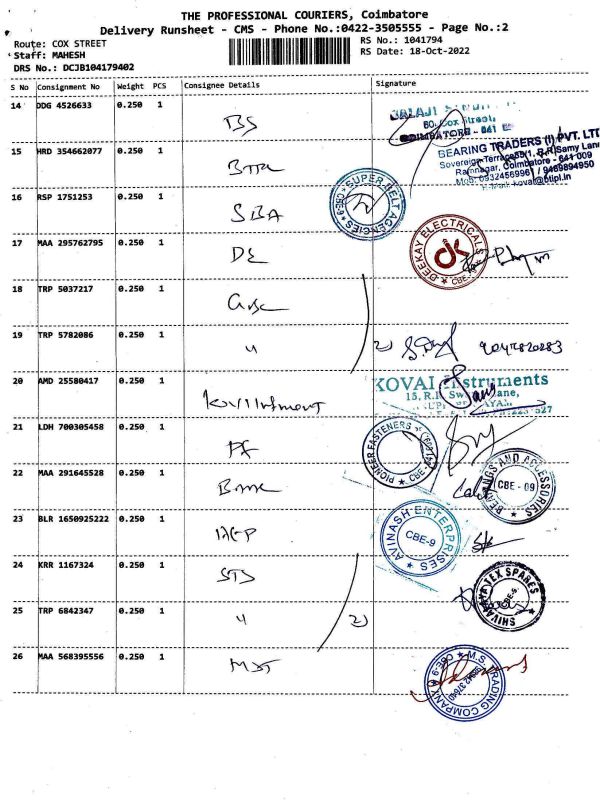 THE PROFESSIONAL COURIERS, Coimbatore
Delivery Runsheet - CMS - Phone No.:0422-3505555 - Page No.:2
Route: COX STREET
RS No.: 1041794
Staff: MAHESH
RS Date: 18-Oct-2022
DRS No.: DCJB104179402
S No Consignment No Weight PCS Consignee Details Signature
14 DDG 4526633 0.250 1 BS
60, Cox Street,
COIMBATORE - 641
15 HRD 354662077 0.250 1
BEARING TRADERS (I) PVT. LTD
Ramnagar, Coimbatore - 641 009
16 RSP 1751253 0.250 1 SBA
SUPER BELT AGENCIES ★ CBE-9 ★
17 MAA 295762795 0.250 1 DE
DEEKAY ELECTRICALS
dk
CBE-9
18 TRP 5037217 0.250 1
19 TRP 5782086 0.250 1 4 2)
20 AMD 25580417 0.250 1
KOVAI Instruments
21 LDH 700305458 0.250 1 PF
PIONEER FASTENERS ★ CBE
22 MAA 291645528 0.250 1
BEARINGS AND ACCESSORIES
CBE - 09
23 BLR 1650925222 0.250 1
AVINASH ENTERPRISES
CBE-9
24 KRR 1167324 0.250 1 STS
TEX SPARES
25 TRP 6842347 0.250 1 4 2)
26 MAA 568395556 0.250 1 MST
M.S. TRADING COMPANY ★ CBE-9 ★